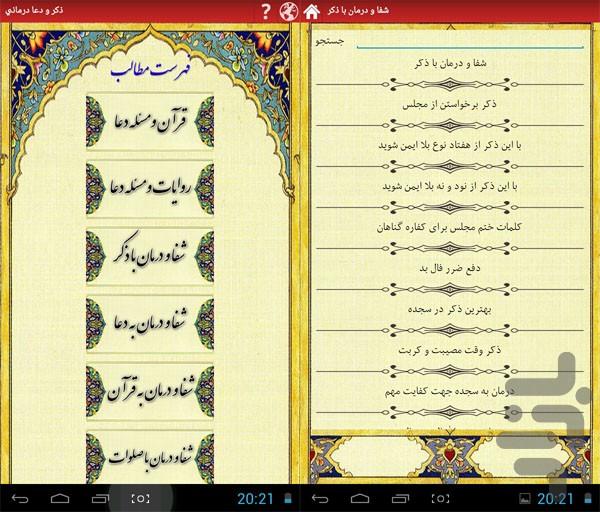 ذکر و دعا درماني
فهرست مطالب
قرآن و مسئله دعا
روایات و مسئله دعا
شفا و درمان با ذکر
شفا و درمان به دعا
شفا و درمان به قرآن
شفا و درمان با صلوات
20:21
شفا و درمان با ذکر
جستجو
شفا و درمان با ذکر
ذکر برخواستن از مجلس
با این ذکر از هفتاد نوع بلا ایمن شوید
با این ذکر از نود و نه بلا ایمن شوید
کلمات ختم مجلس برای کفاره گناهان
دفع ضرر فال بد
بهترین ذکر در سجده
ذکر وقت مصیبت و کربت
درمان به سجده جهت کفایت مهم
بازار
20:21